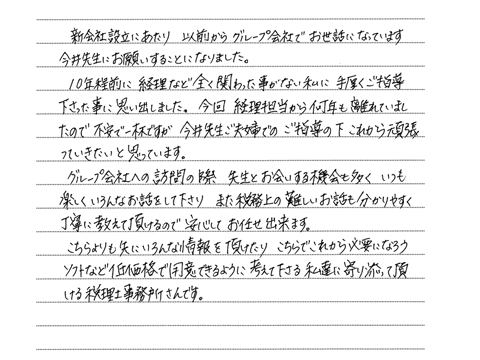 新会社設立にあたり 以前からグループ会社でお世話になっています
今井先生にお願いすることになりました。
10年程前に 経理など全く関わった事がない私に 手厚くご指導
下さった事に思い出しました。今回 経理担当から何年も離れていまし
たので不安で一杯ですが 今井先生ご夫婦での ご指導の下 これから頑張
っていきたいと思っています。
グループ会社への訪問の際 先生とお会いする機会も多く いつも
楽しくいろんなお話をして下さり また税務上の難しいお話も分かりやすく
丁寧に教えて頂けるので安心してお任せ出来ます。
こちらよりも先にいろんな情報を頂けたり こちらでこれから必要になろう
ソフトなど低価格で用意できるように考えて下さる私達に寄り添って頂
ける税理士事務所さんです。